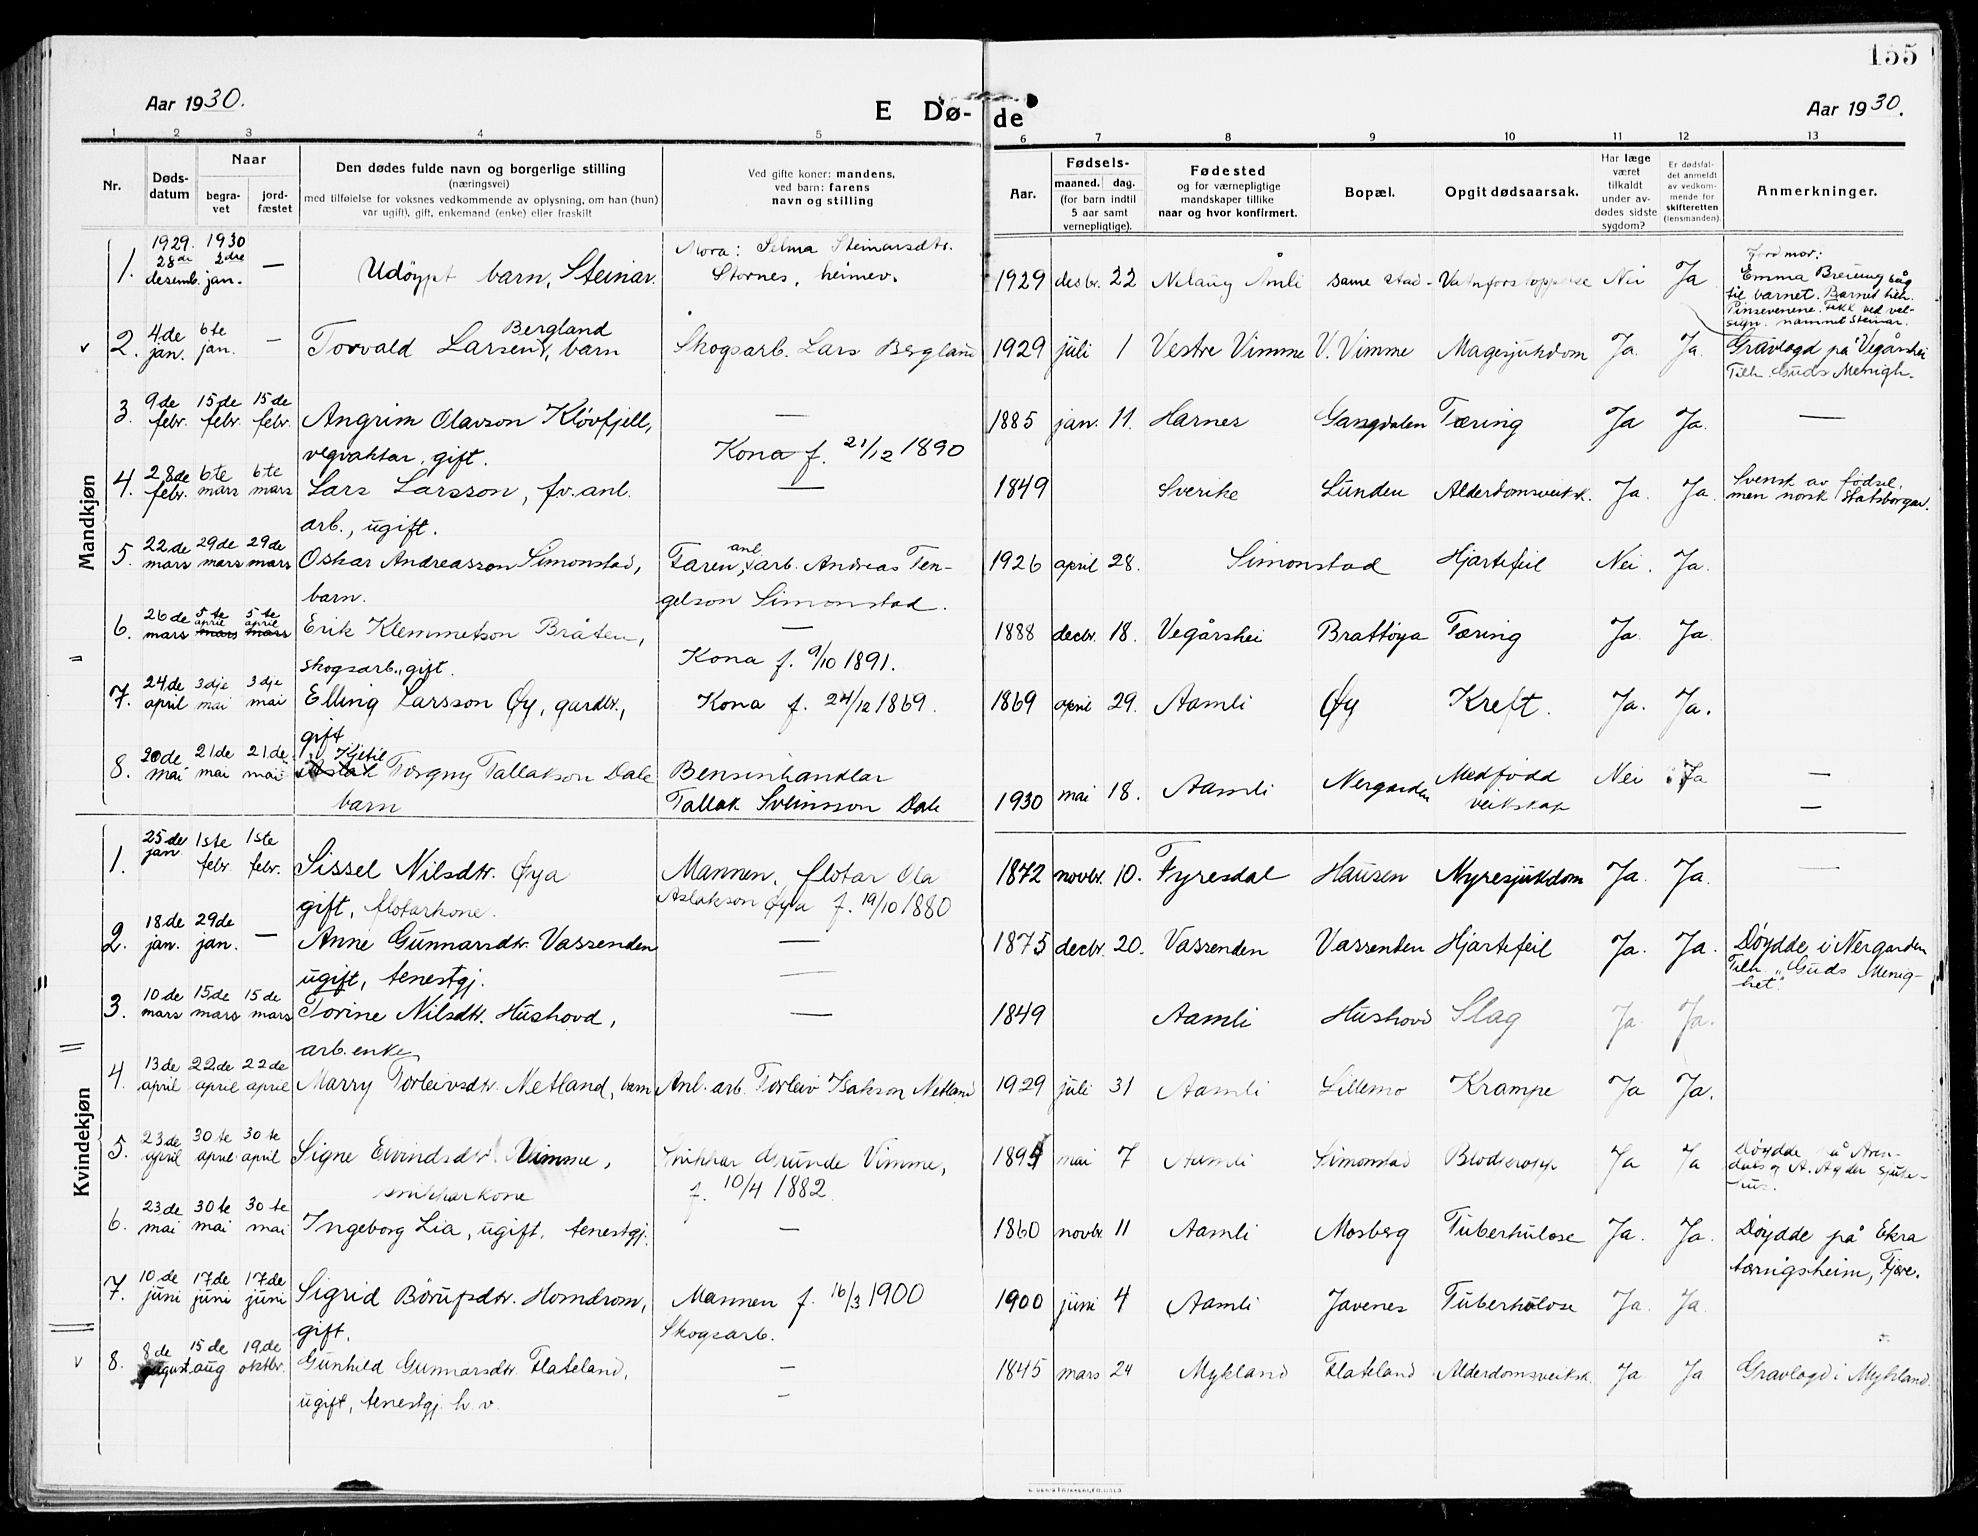 155
Aar 1930.
E Dø-
de
Aar 1930.
1 2 3 4 5 6 7 8 9 10 11 12 13
Nr.
Døds-
datum
Naar
begra-
vet
jord-
fæstet
Den dødes fulde navn og borgerlige stilling
(næringsvei)
med tilføielse for voksnes vedkommende av oplysning, om han (hun)
var ugift, gift, enkemand (enke) eller fraskilt
Ved gifte koner: mandens,
ved barn: farens
navn og stilling
Aar.
Fødsels-
maaned. dag.
(for barn indtil
5 aar samt
vernepligtige).
Fødested
og for værnepligtige
mandskaper tillike
naar og hvor konfirmert.
Bopæl.
Opgit dødsaarsak.
Har læge
været
tilkaldt
under av-
dødes sidste
sygdom?
Er dødsfal-
det anmeldt
av vedkom-
mende for
skifteretten
(lensmanden).
Anmerkninger.
Mandkjøn
1. 1929. 28de desemb. 1930 2dre jan. — Udøypt barn, Steinar. Mora: Selma Steinarsdtr.
Stornes, heimev.
1929 desbr. 22 Nelaug Åmli same stad Vatnforstoppelse Nei Ja
Jordmor:
Emma Breiung såg
til barnet. Barnet tilh.
Pinsevenene. Fekk ved vel-
sign. namnet Steinar.
v 2. 4.de jan. 6te jan. — Torvald Larsen Bergland, barn Skogsarb. Lars Bergland
1929 juli 1 Vestre Vimme V. Vimme Magesjukdom Ja. Ja. Gravlagd på Vegårshei
Tilh. Guds Menigh.
3. 9de febr. 15de febr. 15de febr. Angrim Olavson Kløvfjell, —
vegvaktar, gift. Kona f. 21/12 1890
1885 jan. 11. Harnes Gangdalen Tæring Ja Ja. —
4. 28de febr. 6te mars 6te mars Lars Larsson, fv. anl. —
arb., ugift.
1849 Sverike Lunden Alderdomsveiksk. Ja. Ja. Svensk av fødsel,
men norsk statsborgar.
5. 22de mars 29de mars 29de mars Oskar Andreasson Simonstad, Faren, anl. arb. Andreas Ten-
barn. gelson Simonstad.
1926 april 28. Simonstad Hjartefeil Nei. Ja.
6. 26de mars 5te april mars 5te april mars Erik Klemmetson Bråten, —
skogsarb., gift. Kona f. 9/10 1891.
1888 decbr. 18. Vegårshei Brattøya Tæring Ja. Ja.
7. 24de april 3dje mai 3dje mai Elling Larsson Øy, gardbr., Kona f. 24/12 1869.
gift
1869 april 29. Aamli Øy Kreft. Ja. Ja.
8. 20de mai 21de mai 21de mai Aslak Kjetil Torgny Tallakson Dale Bensinhandlar
barn Tallak Sveinsson Dale
1930 mai 18. Aamli Nergarden Medfødd
veikskap Nei Ja —
—
Kvindekjøn
1. 25de jan. 1ste febr. 1ste febr. Sissel Nilsdtr. Øya Mannen, fløtar Ola
gift, fløtarkone. Aslakson Øya f. 19/10 1880
1872 novbr. 10. Fyresdal Hausen Nyresjukdom Ja. Ja. —
2. 18de jan. 29de jan. — Anne Gunnarsdtr. Vassenden —
ugift, tenestgj. —
1875 decbr. 20. Vassenden Vassenden Hjartefeil Ja. Ja. Døydde i Nergarden
Tilh. "Guds Menig-
het".
3. 10de mars 15de mars 15de mars Torine Nilsdtr. Hushovd, —
arb. enke
1849 Aamli Hushovd Slag Ja. Ja.
4. 13de april 22de april 22de april Marry Torleivsdtr. Netland, barn Anl. arb. Torleiv Isakson Netland
1929 juli 31 Aamli Lillemo Krampe Ja Ja.
5. 23de april 30te april 30te april Signe Eivindsdtr. Vimme, Snikkar Gunde Vimme,
snikkarkone f. 10/4 1882
mai 7 Aamli Simonstad Blodpropp Ja Ja Døydde på Aren-
dals og A. Agder sjuke-
hus.
6. 23de mai 30te mai 30te mai Ingeborg Lia, ugift, tenestgj. —
1860 novbr. 11 Aamli Mosberg Tuberkulose Ja. Ja. Døydde på Ekra
tæringsheim, Fjære.
7. 10de juni 17de juni 17de juni Sigrid Børufsdtr. Homdrom, Mannen f. 16/3 1900
gift. Skogsarb.
1900 juni 4 Aamli Javenes Tuberkulose Ja. Ja.
v 8. 8de august. 15de aug 19.de oktbr. Gunhild Gunnarsdtr. Flateland, —
ugift, tenestgj. h. v. —
1845 mars 24 Mykland Flateland Alderdomsveiksk. Ja. Ja Gravlagd i Mykland.